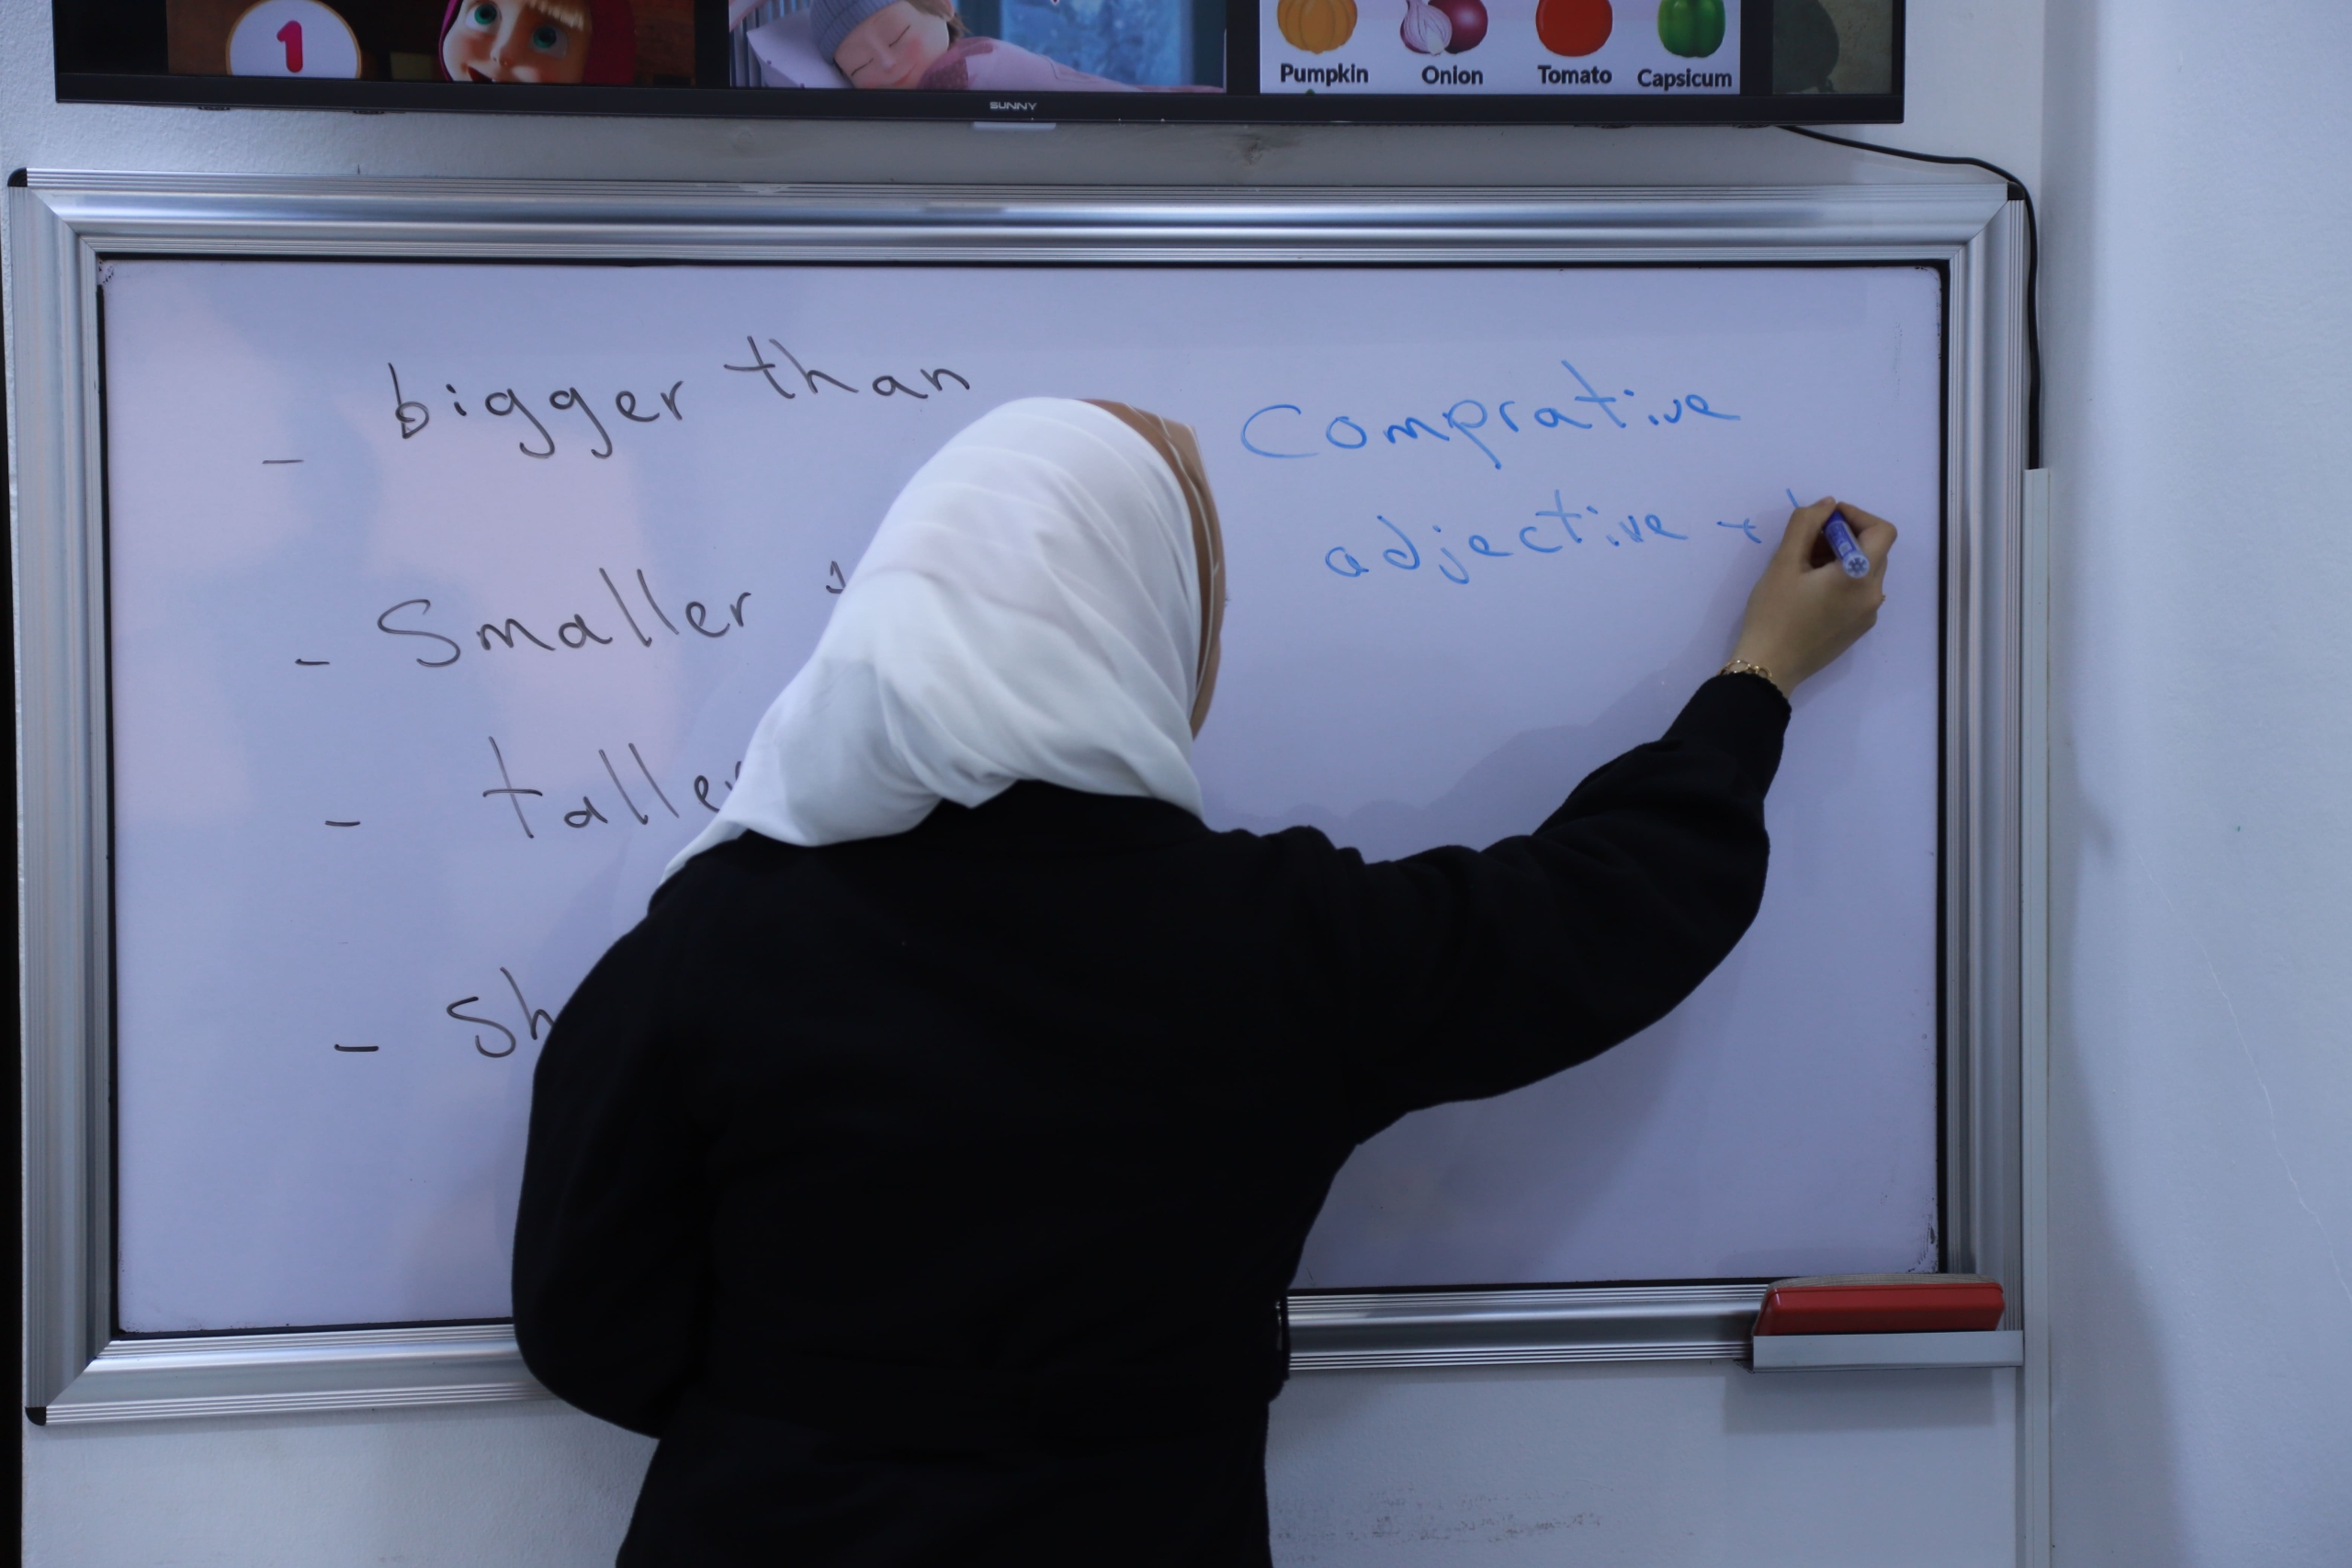 1
Pumpkin Onion Tomato Capsicum
SUNNY
- bigger than
- Smaller
- taller
-
Comprative
adjective +